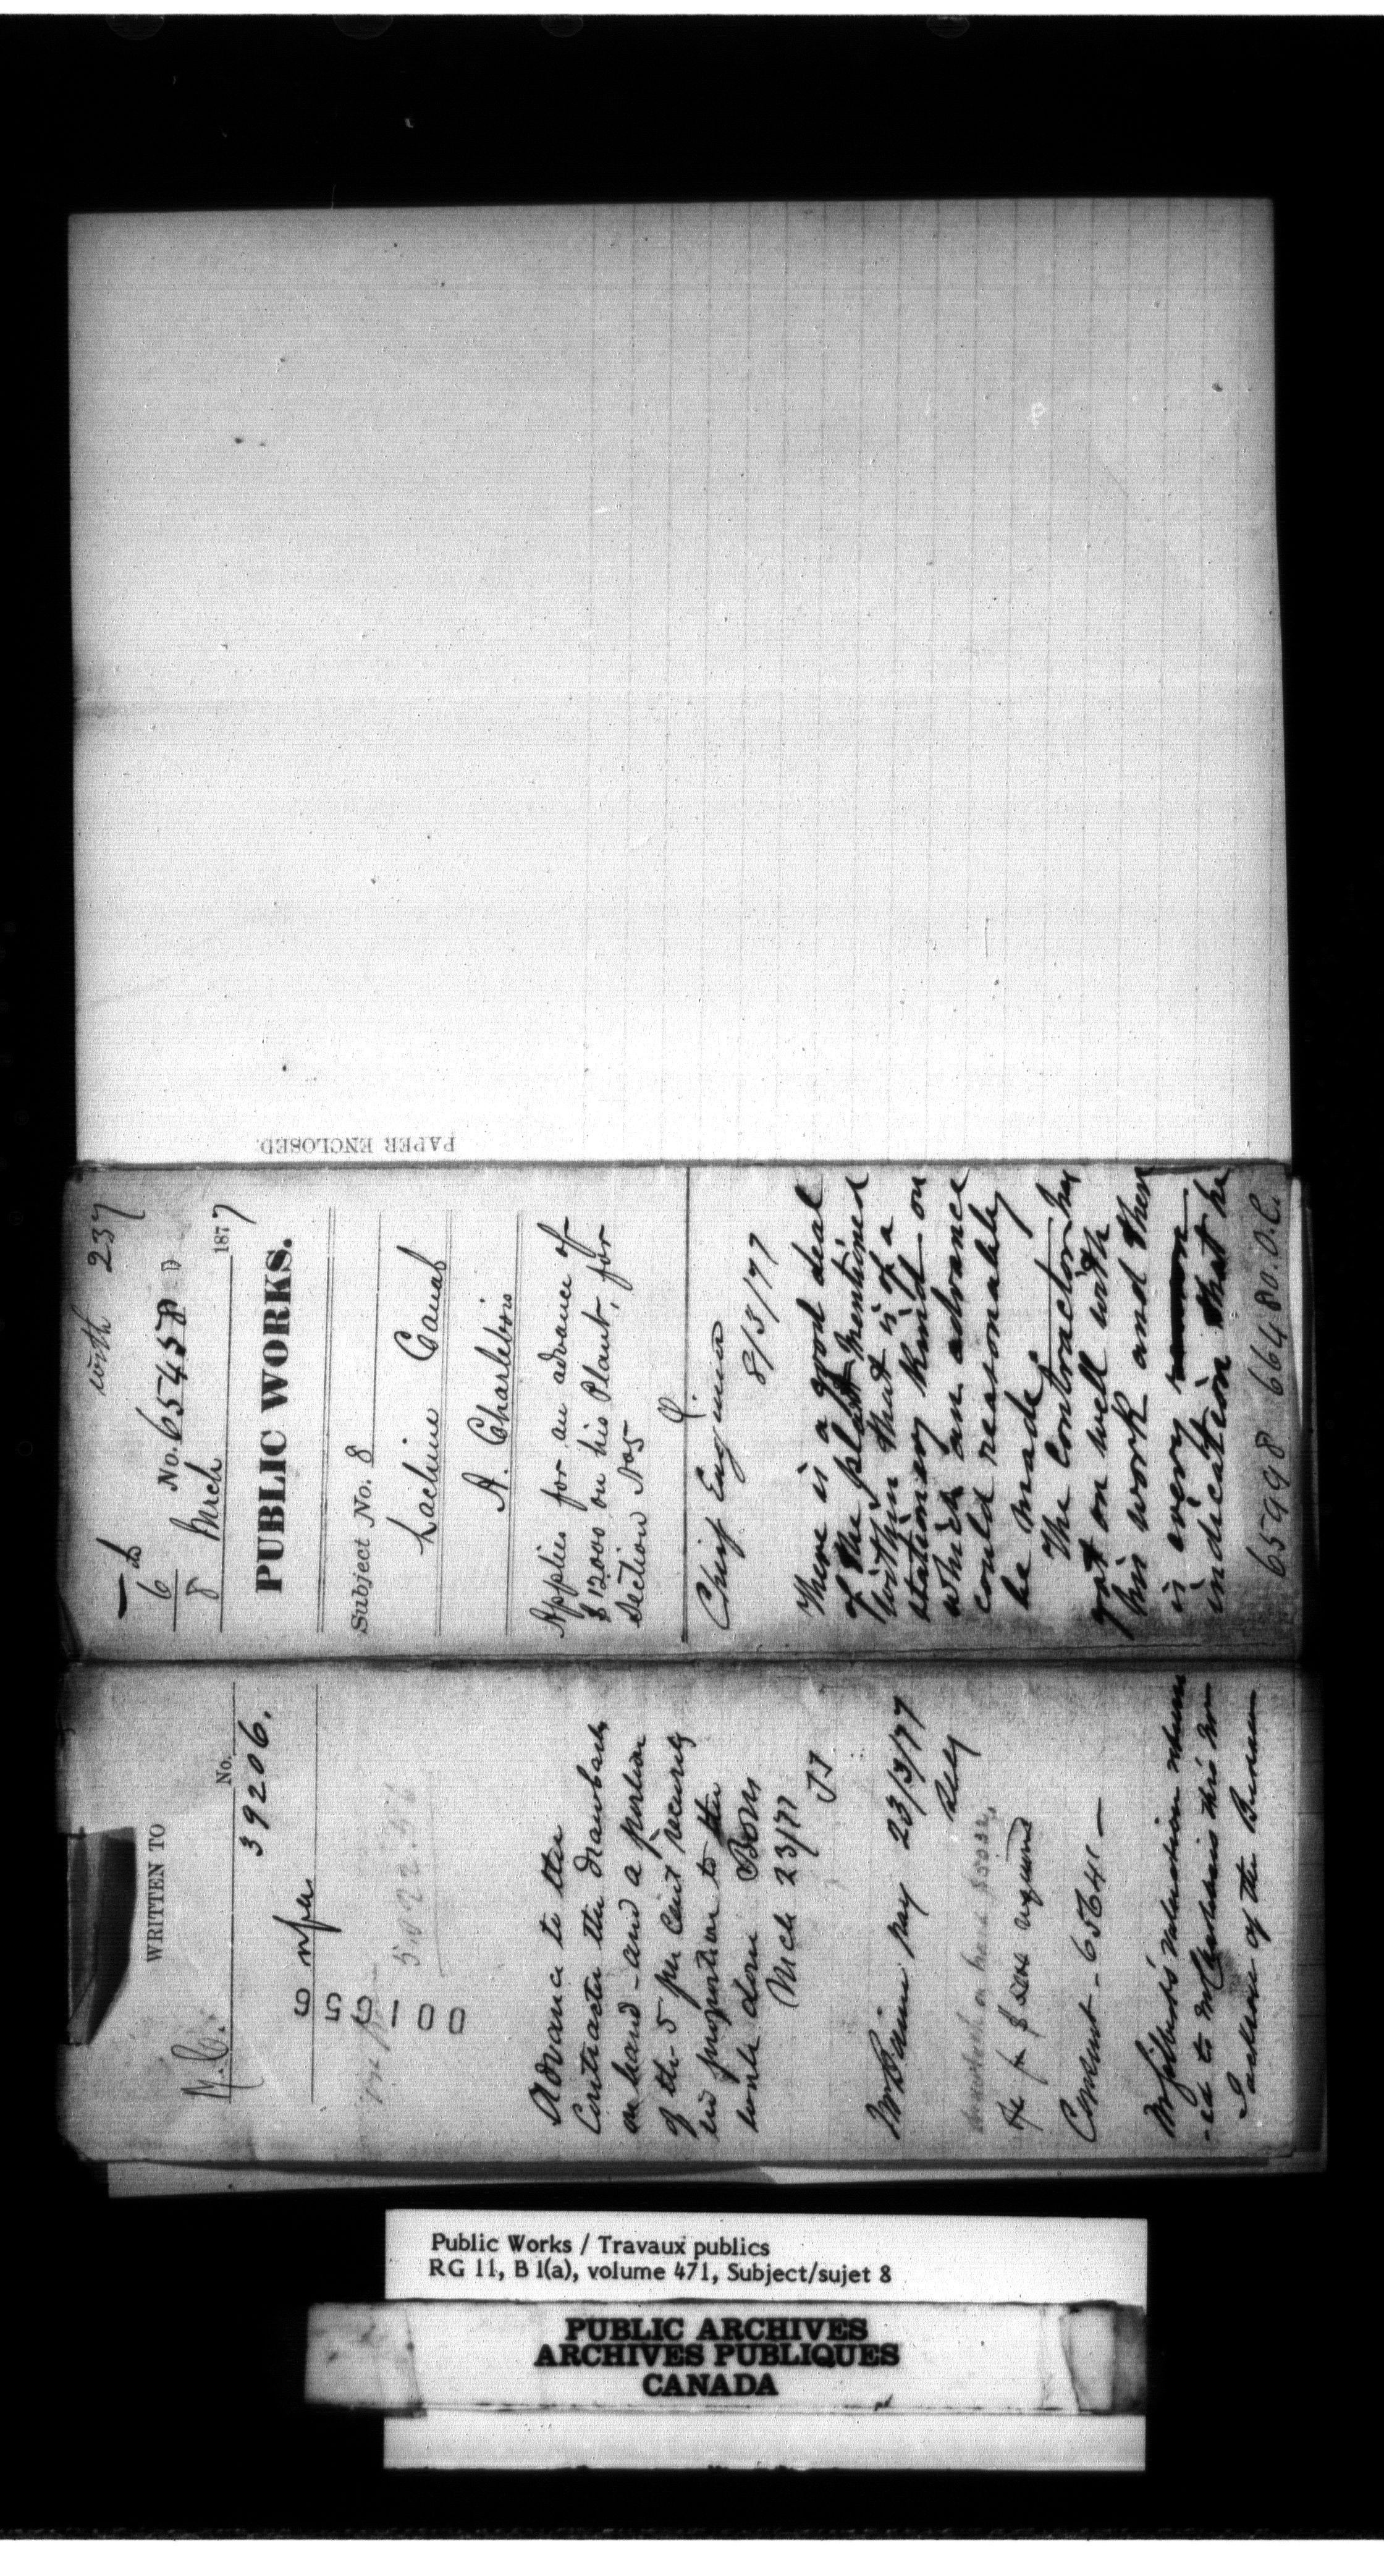 PAPER ENCLOSED.
with 237
6
8
No. 65458
8 Mrch 1877
PUBLIC WORKS.
Subject No. 8
Lachine Canal
A. Charlebois
Applies for an advance of
$12000 on his Plant, for
Section No 5
Chief Engineer
8/3/77
There is a good deal
of the plant mentioned
within that is of a
stationery kind on
which an advance
could reasonably
be made
The Contractor has
got on well with
his work and there
is every
indication that he
65998 66480.O.C.
WRITTEN TO
No.
M.C.
39206.
001656
5022.56
Advance to the
Contractor the drawback
on hand - and a portion
of the 5 per cent security
in proportion to the
work done
Mch 23/77
23/3/77
drawback on hand $5022.
for $ required
65641 -
valuation return
-ed to this
of the
Public Works / Travaux publics
RG 11, B 1(a), volume 471, Subject/sujet 8
PUBLIC ARCHIVES
ARCHIVES PUBLIQUES
CANADA